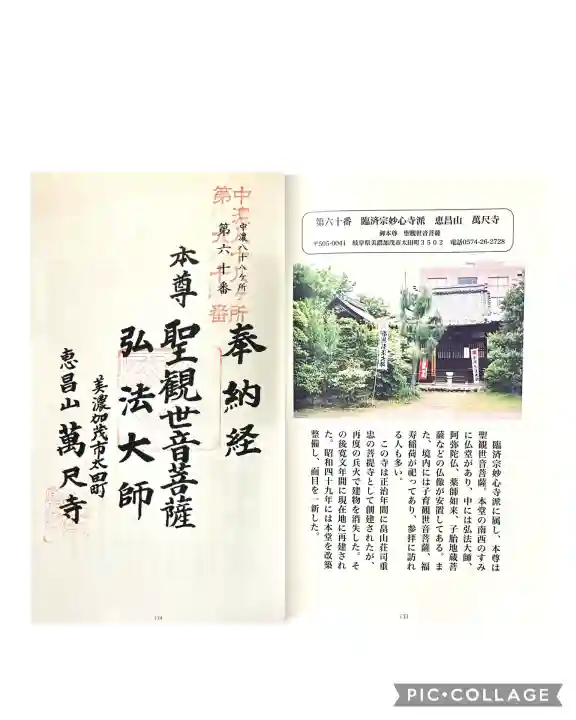 中濃八十八ヶ所
第六十番
中濃八十八ヶ所
第六十番
奉納経
本尊 聖観世音菩薩
弘法大師
美濃加茂市太田町
恵昌山 萬尺寺
134
第六十番 臨済宗妙心寺派 恵昌山 萬尺寺
御本尊 聖観世音菩薩
〒505-0041 岐阜県美濃加茂市太田町3502 電話0574-26-2728
臨済宗妙心寺派に属し、本尊は
聖観世音菩薩。本堂の南西のすみ
に仏堂があり、中には弘法大師、
阿弥陀仏、薬師如来、子胎地蔵菩
薩などの仏像が安置してある。ま
た、境内には子育観世音菩薩、福
寿稲荷が祀ってあり、参拝に訪れ
る人も多い。
この寺は正治年間に畠山荘司重
忠の菩提寺として創建されたが、
再度の兵火で建物を消失した。そ
の後寛文年間に現在地に再建され
た。昭和四十九年には本堂を改築
整備し、面目を一新した。
133
PIC•COLLAGE